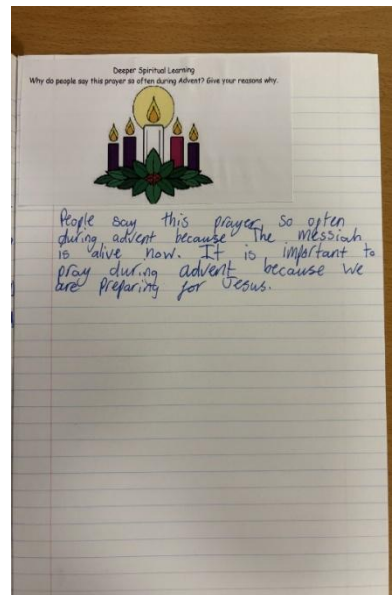 Deeper Spiritual Learning
Why do people say this prayer so often during Advent? Give your reasons why.
People say this prayer so often
during advent because The messiah
is alive now. It is important to
pray during advent because we
are Preparing for Jesus.